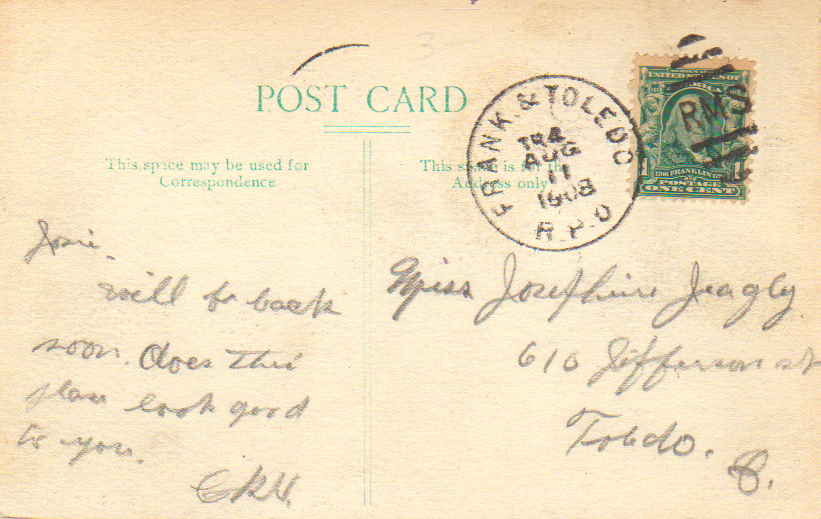 POST CARD
This space may be used for
Correspondence
This space is for the
Address only
FRANK. & TOLEDO
TR4
AUG
11
1908
R.P.O
RMS
UNITED STATES OF
AMERICA
FRANKLIN
POSTAGE
1 ONE CENT 1
Josie.
will be back
soon. does this
place look good
to you.
CRH.
Miss Josephine Jeagly
616 Jefferson st
Toledo.
O.